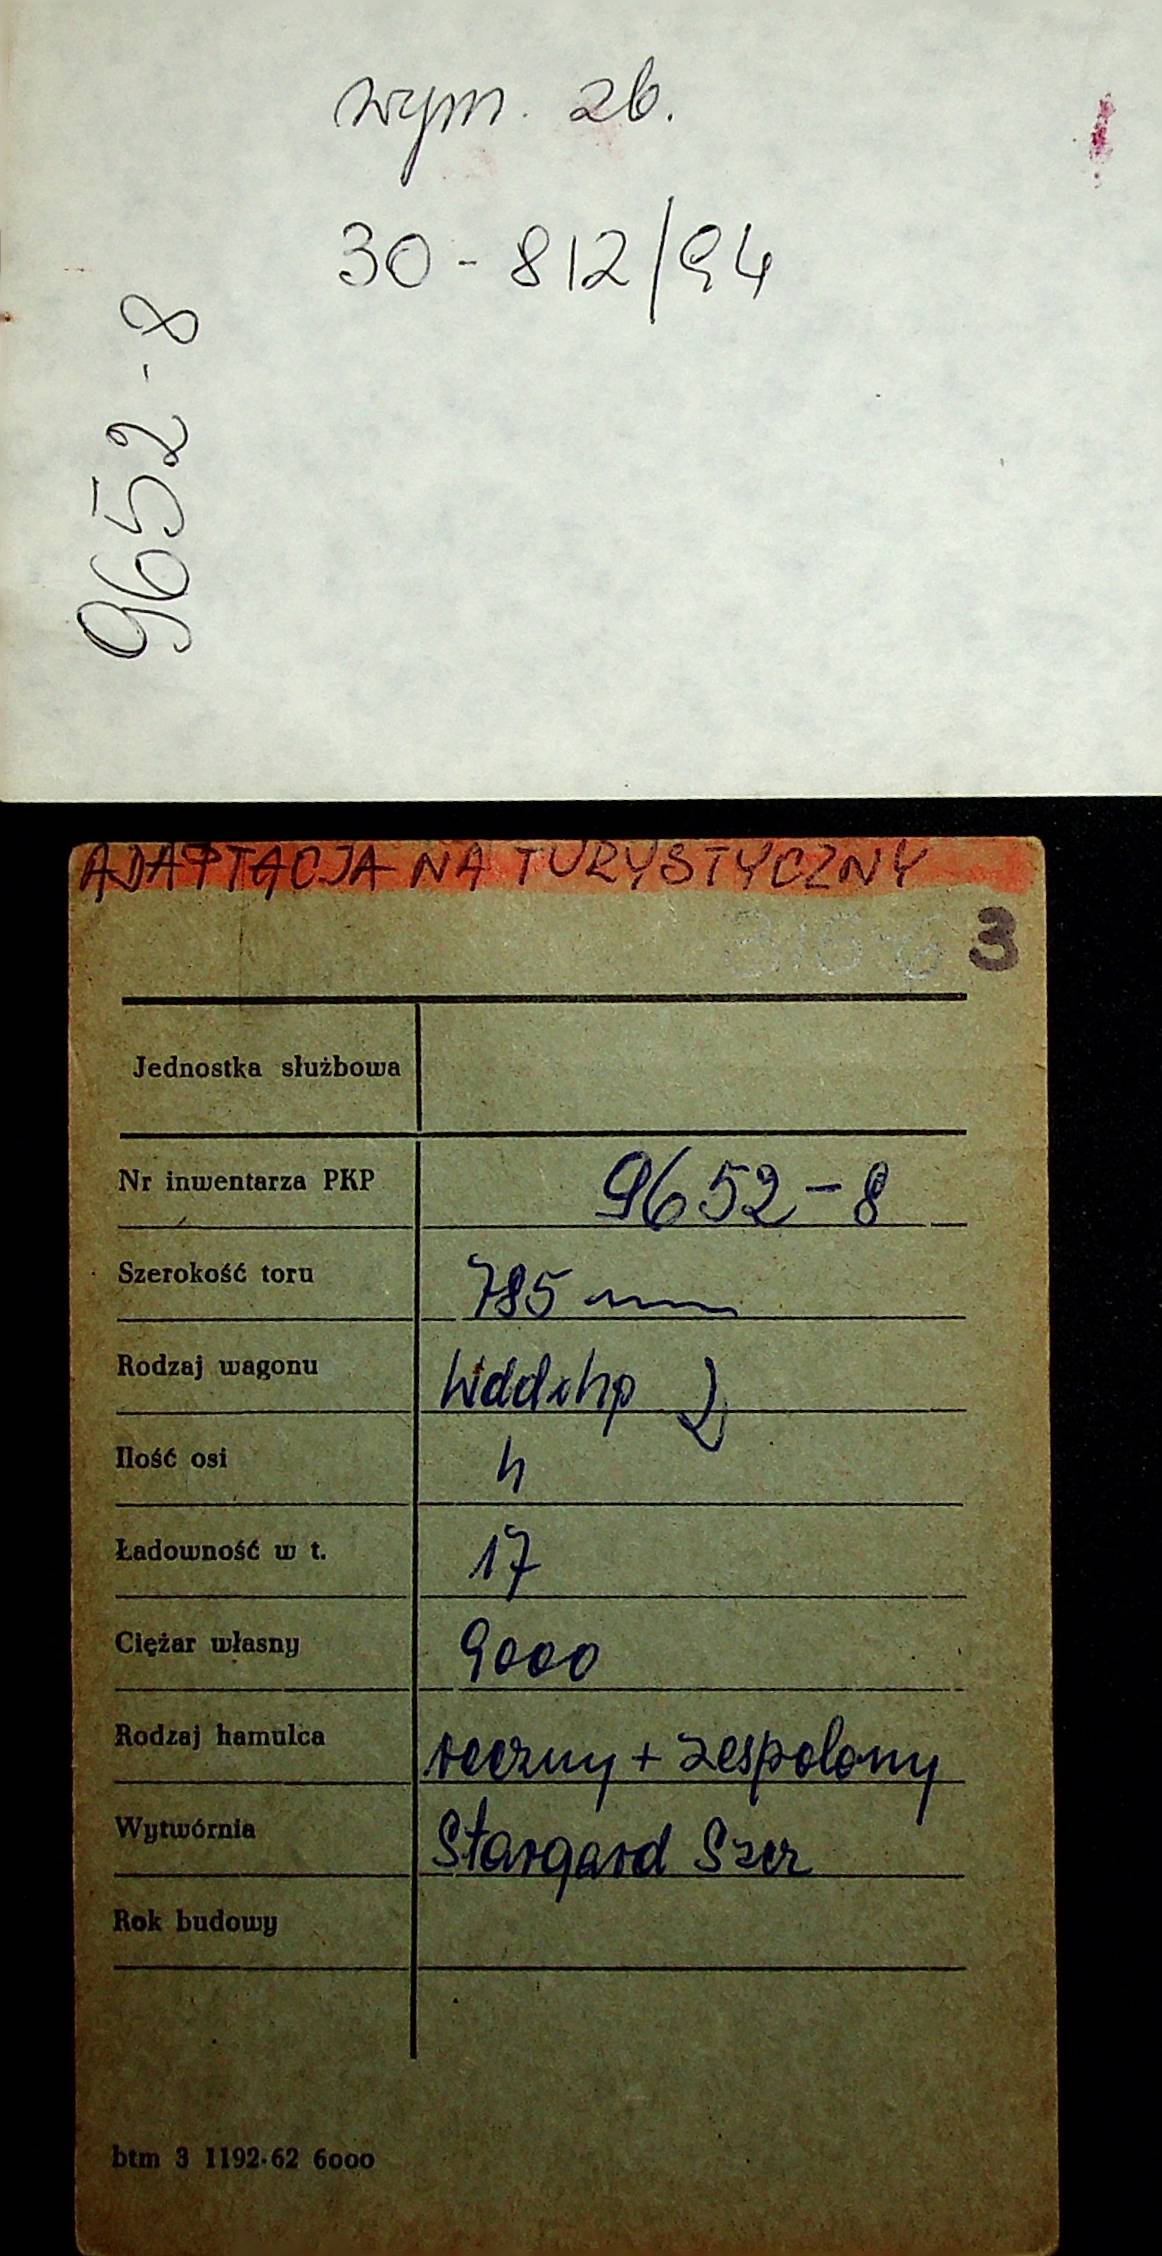 wym. zb.
30 - 812/94
9652 - 8
ADAPTACJA NA TURYSTYCZNY
3
Jednostka służbowa
Nr inwentarza PKP 9652-8
Szerokość toru 785 mm
Rodzaj wagonu Wddxhp
Ilość osi 4
Ładowność w t. 17
Ciężar własny 9000
Rodzaj hamulca ręczny + zespolony
Wytwórnia Stargard Szcz
Rok budowy
btm 3 1192-62 6000